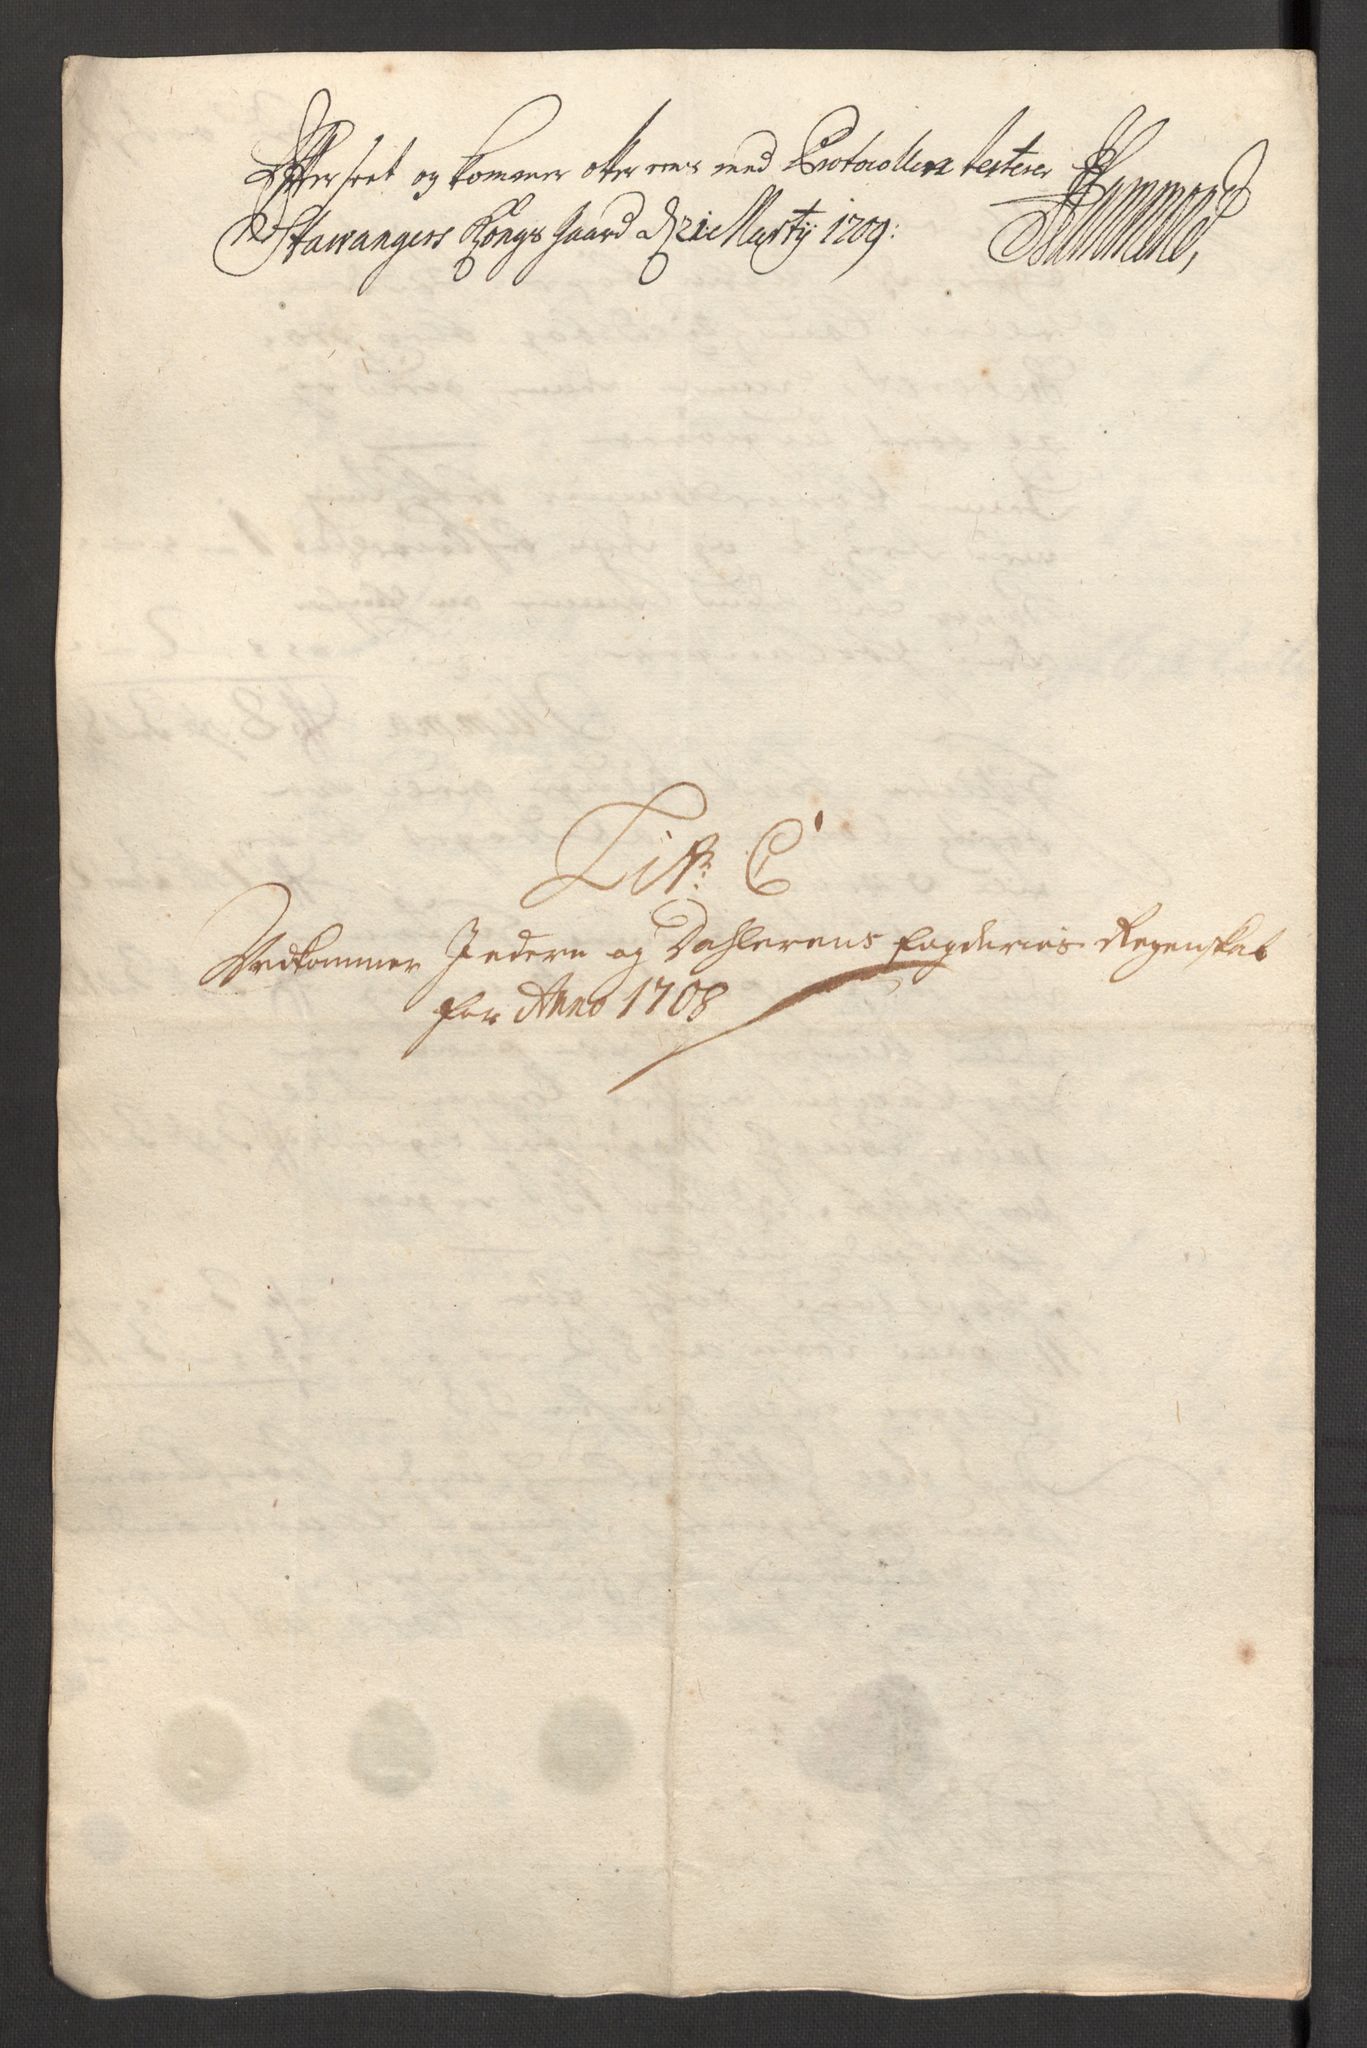 Efterseet og kommer ofver eens med Protocollen testerer
Stawangers Kongsgaard d 21 Martij 1709:
Litr: C
Vedkommer Jedern og Dahlerens fogderies Regenskab
for Anno 1708